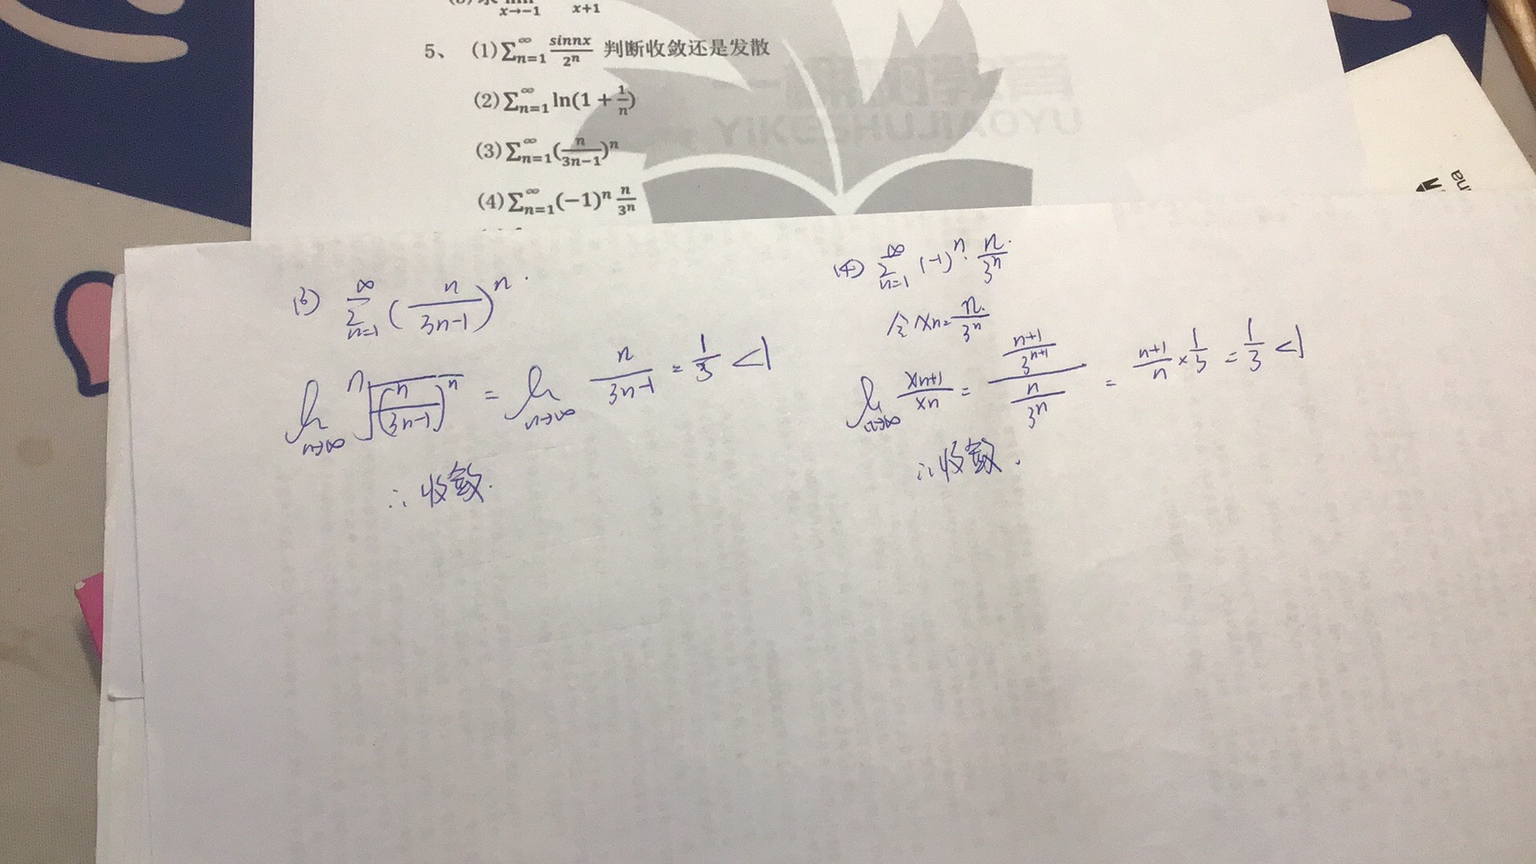 x→−1 x+1
5、 (1)∑_{n=1}^{∞} \frac{sinnx}{2^n} 判断收敛还是发散
(2)∑_{n=1}^{∞} ln(1 + \frac{1}{n})
(3)∑_{n=1}^{∞} (\frac{n}{3n−1})^n
(4)∑_{n=1}^{∞} (−1)^n \frac{n}{3^n}
YIKESHUJIAOYU
(3) ∑_{n=1}^{∞} (\frac{n}{3n-1})^n.
lim_{n→∞} \sqrt[n]{(\frac{n}{3n-1})^n} = lim_{n→∞} \frac{n}{3n-1} = \frac{1}{3} <1
∴收敛.
(4) ∑_{n=1}^{∞} (-1)^n · \frac{n}{3^n}.
令 xn=\frac{n}{3^n}.
lim_{n→∞} \frac{xn+1}{xn} = \frac{\frac{n+1}{3^{n+1}}}{\frac{n}{3^n}} = \frac{n+1}{n} × \frac{1}{3} = \frac{1}{3} <1
∴收敛.